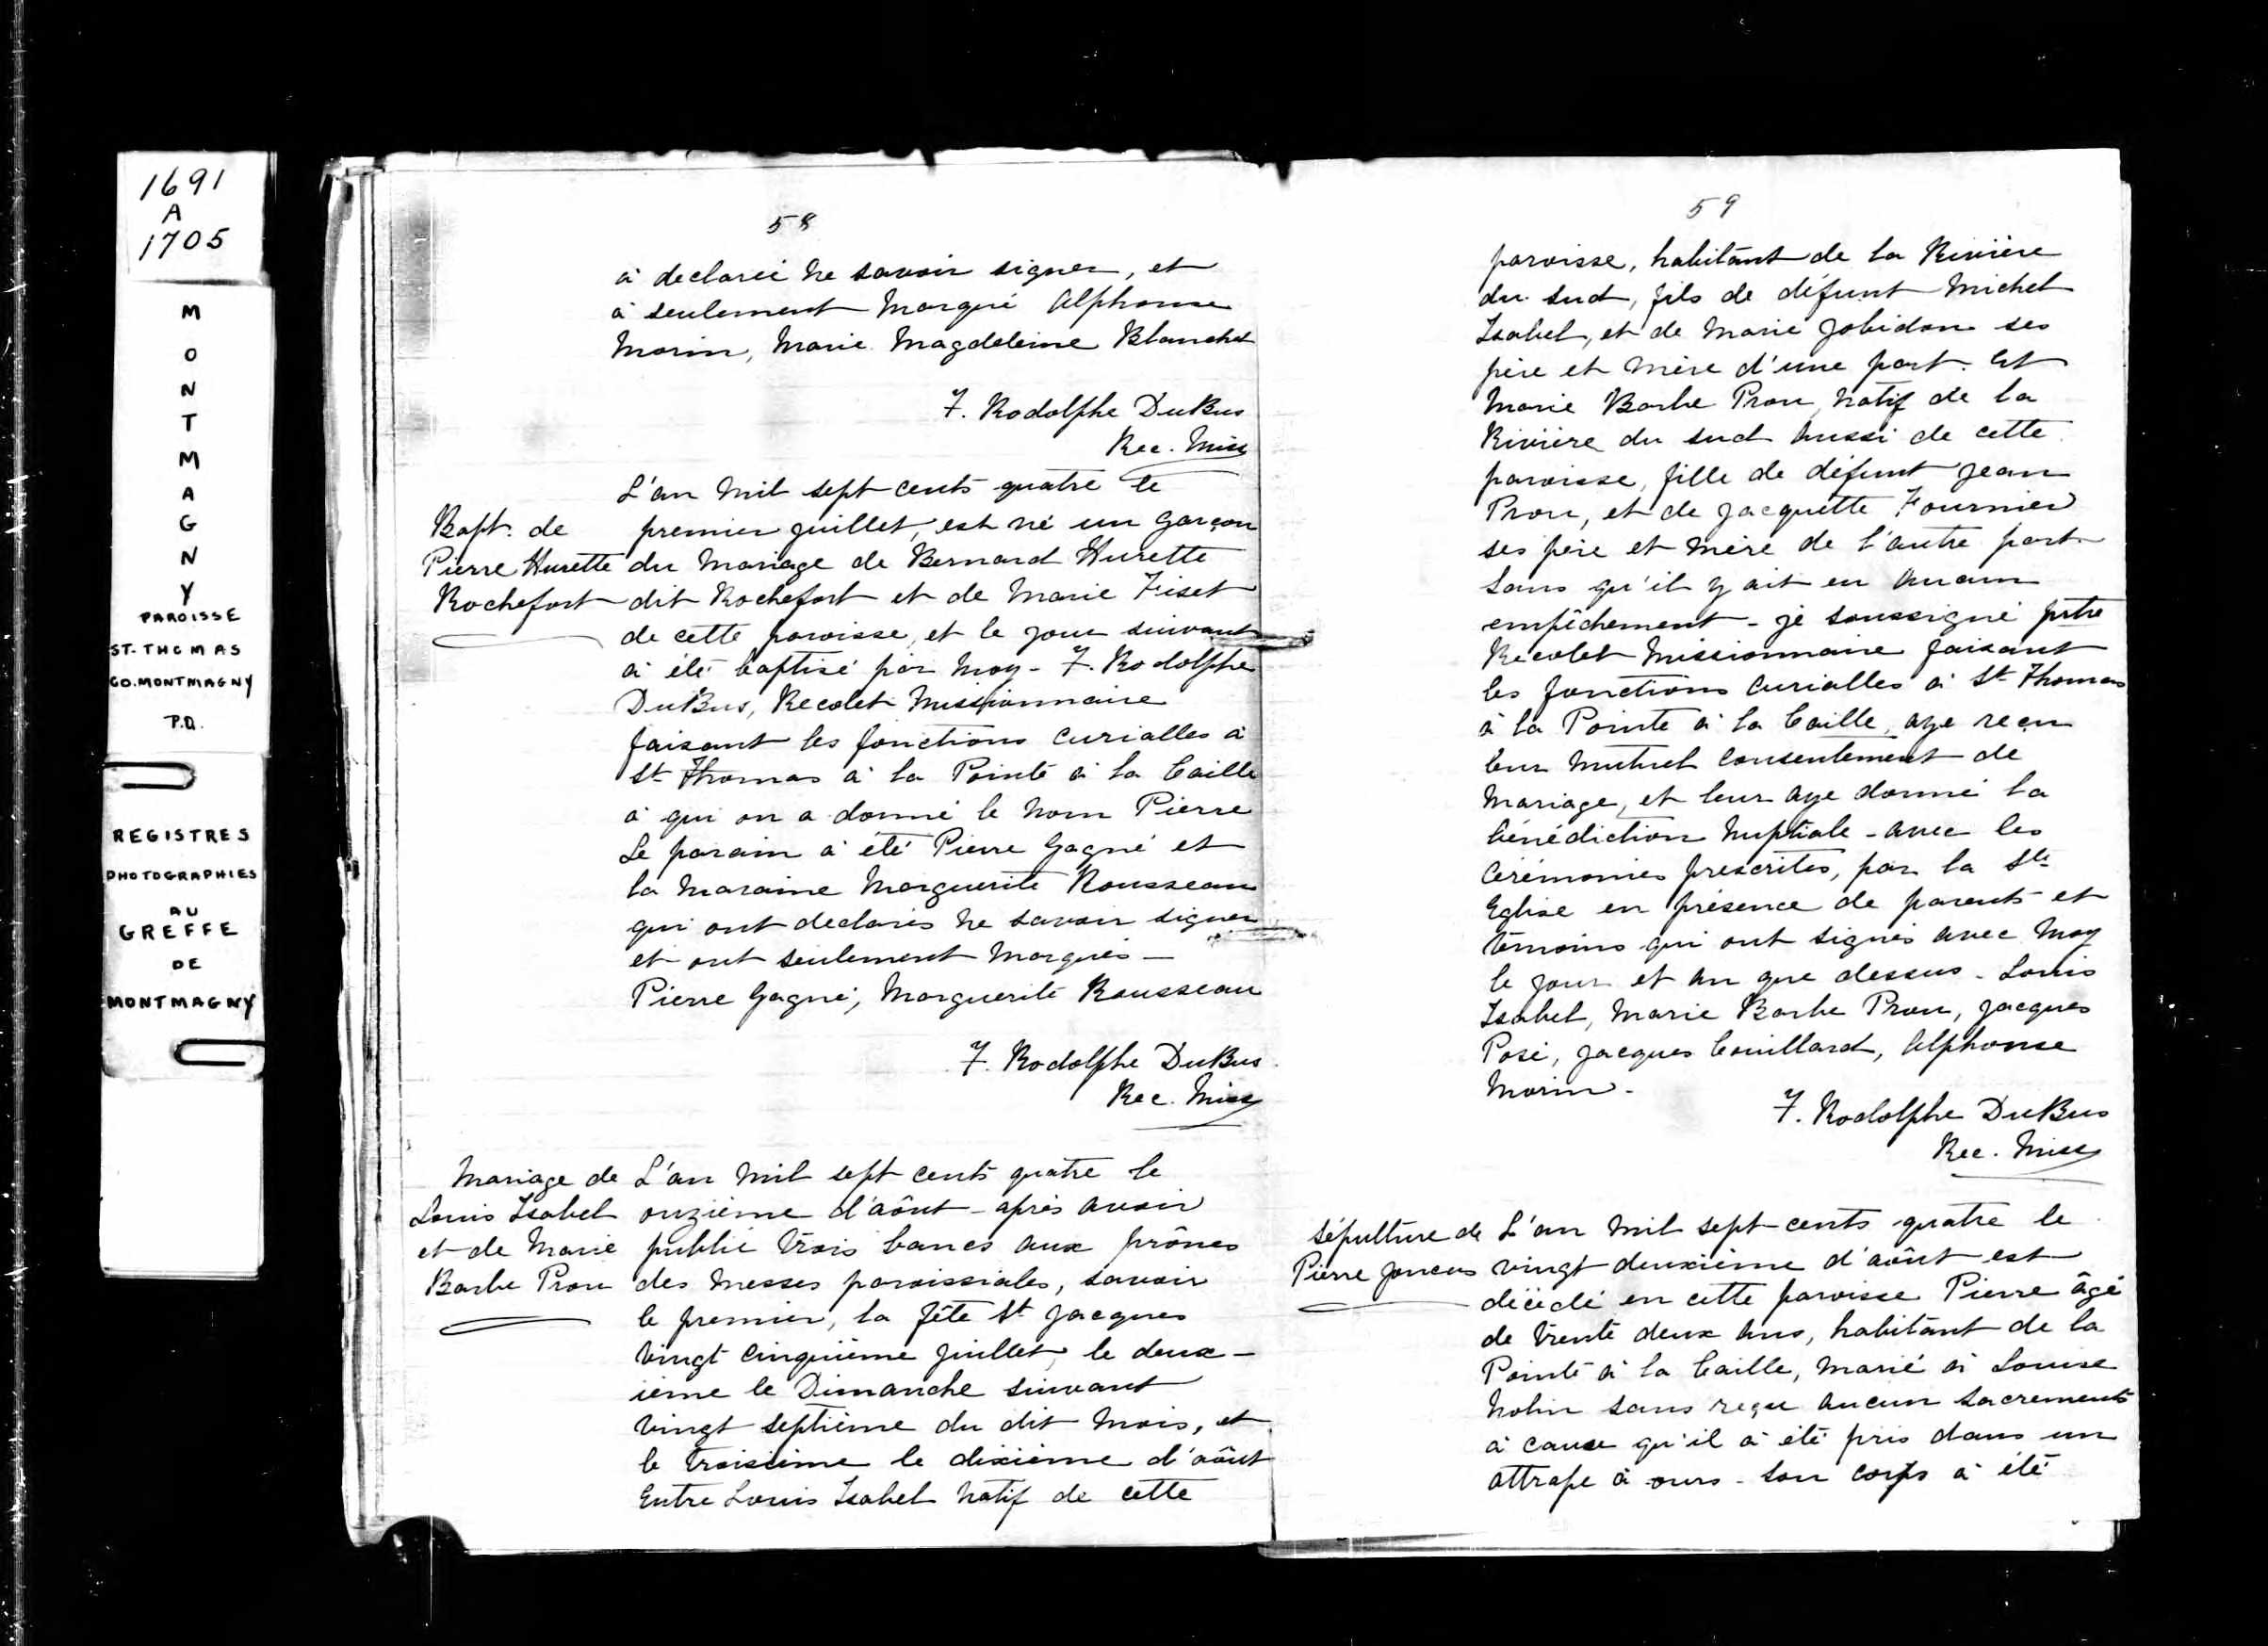 1691
A
1705
M
O
N
T
M
A
G
N
Y
PAROISSE
ST-THOMAS
CO. MONTMAGNY
P.Q.
REGISTRES
PHOTOGRAPHIES
AU
GREFFE
DE
MONTMAGNY
58
à declarée ne savoir signer, et
à seulement marqué Alphonse
Morin, Marie Magdeleine Blanchet
F. Rodolphe DuBus
Rec. Miss
L'an mil sept cents quatre le
Bapt. de premier juillet, est né un garçon
Pierre Hurette du mariage de Bernard Hurette
Rochefort dit Rochefort et de Marie Fiset
de cette paroisse, et le jour suivant
à été baptisé par moy - F. Rodolphe
DuBus, Recolet Missionnaire
faisant les fonctions curialles à
St Thomas à la Pointe à la Caille
à qui on a donné le nom Pierre
Le parain à été Pierre Gagné et
la maraine Marguerite Rousseau
qui ont declarés ne savoir signer
et ont seulement marqués -
Pierre Gagné, Marguerite Rousseau
F. Rodolphe DuBus
Rec. Miss
Mariage de L'an mil sept cents quatre le
Louis Isabel onzième d'aôut - après avoir
et de Marie publié trois bancs aux prônes
Barbe Prou des messes paroissiales, savoir
le premier, la fête St Jacques
vingt cinquième juillet, le deux-
ième le Dimanche suivant
vingt septième du dit mois, et
le troisième le dixième d'aôut
Entre Louis Isabel natif de cette
59
paroisse, habitant de la Rivière
du sud, fils de défunt Michel
Isabel, et de Marie Jobidon ses
père et mère d'une part. Et
Marie Barbe Prou natif de la
Rivière du sud aussi de cette
paroisse, fille de défunt Jean
Prou, et de Jacquette Fournier
ses père et mère de l'autre part
sans qu'il y ait eu aucun
empêchement - je soussigné prtre
Recolet Missionnaire faisant
les fonctions curialles à St Thomas
à la Pointe à la Caille, aye reçu
leur mutuel consentement de
mariage, et leur aye donné la
bénédiction nuptiale - avec les
cérémonies prescrites, par la Ste
Eglise en présence de parents et
témoins qui ont signés avec moy
le jour et an que dessus - Louis
Isabel, Marie Barbe Prou, Jacques
Posé, Jacques Couillard, Alphonse
Morin -
F. Rodolphe DuBus
Rec. Miss
Sépulture de L'an mil sept cents quatre le
Pierre Joncas vingt deuxième d'aôut est
décédé en cette paroisse Pierre âgé
de trente deux ans, habitant de la
Pointe à la Caille, marié à Louise
Nolin sans reçu aucun sacrements
à cause qu'il à été pris dans un
attrape à ours - son corps à été